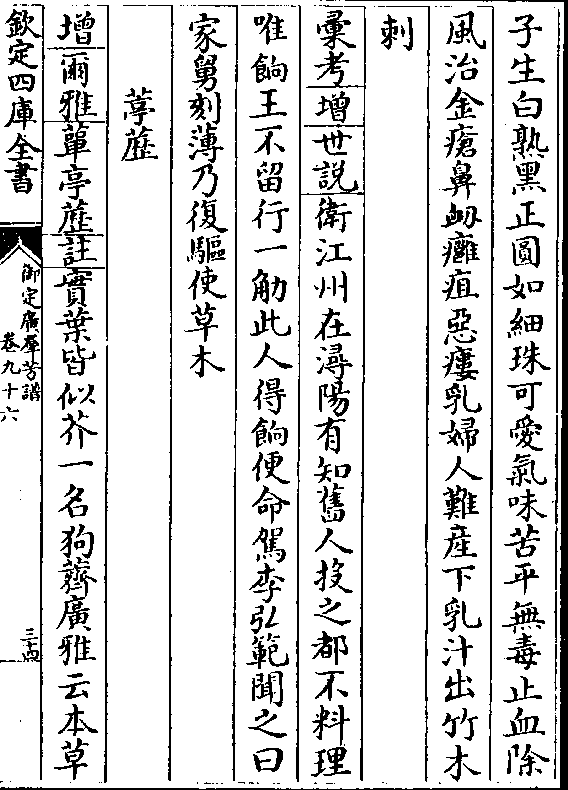 子生白熟黑正圓如細珠可愛氣味苦平無毒止血除
風治金瘡鼻衂癰疽惡瘻乳婦人難産下乳汁出竹木
刺
彚考增世説衛江州在潯陽有知舊人投之都不料理
唯餉王不留行一觔此人得餉便命駕李弘範聞之曰
家舅刻薄乃復驅使草木
葶藶
增爾雅蕇亭藶註實葉皆似芥一名狗薺廣雅云本草
欽定四庫全書
御定廣羣芳譜
卷九十六
三十四